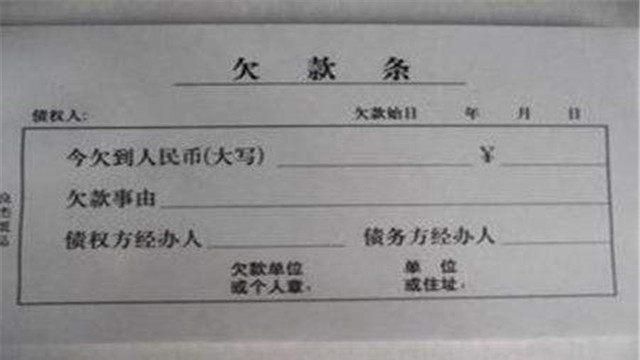 欠款条
债权人： 欠款始日 年 月 日
今欠到人民币(大写) ¥
欠款事由
债权方经办人 债务方经办人
欠款单位 单位
或个人章： 或住址：